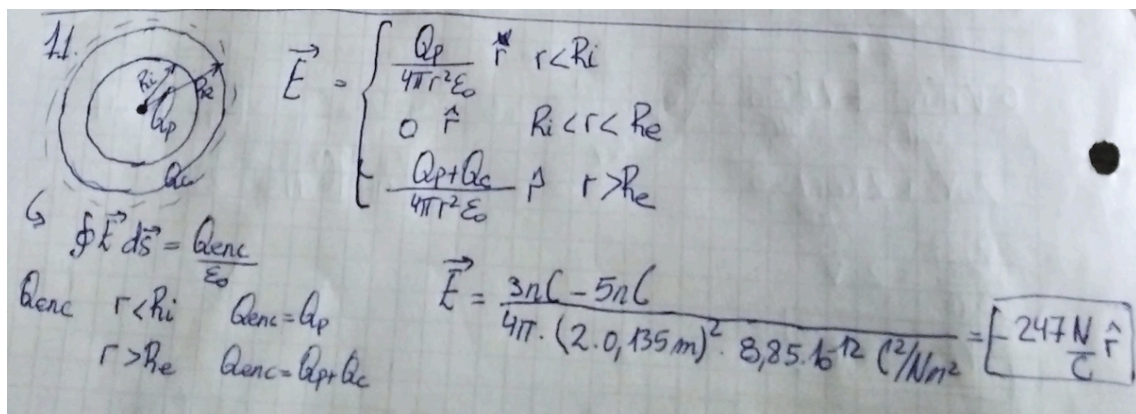 11.
Ri
Re
Qp
Qc
E⃗ = { Qp / 4πr²ε₀ r̂   r<Ri
0 r̂   Ri<r<Re
Qp+Qc / 4πr²ε₀ r̂   r>Re
↳ ∮E⃗ ds⃗ = Qenc / ε₀
Qenc   r<Ri   Qenc=Qp
r>Re   Qenc=Qp+Qc
E⃗ = 3nC − 5nC / 4π·(2·0,135m)²·8,85·10⁻¹² C²/Nm² = −247 N/C r̂